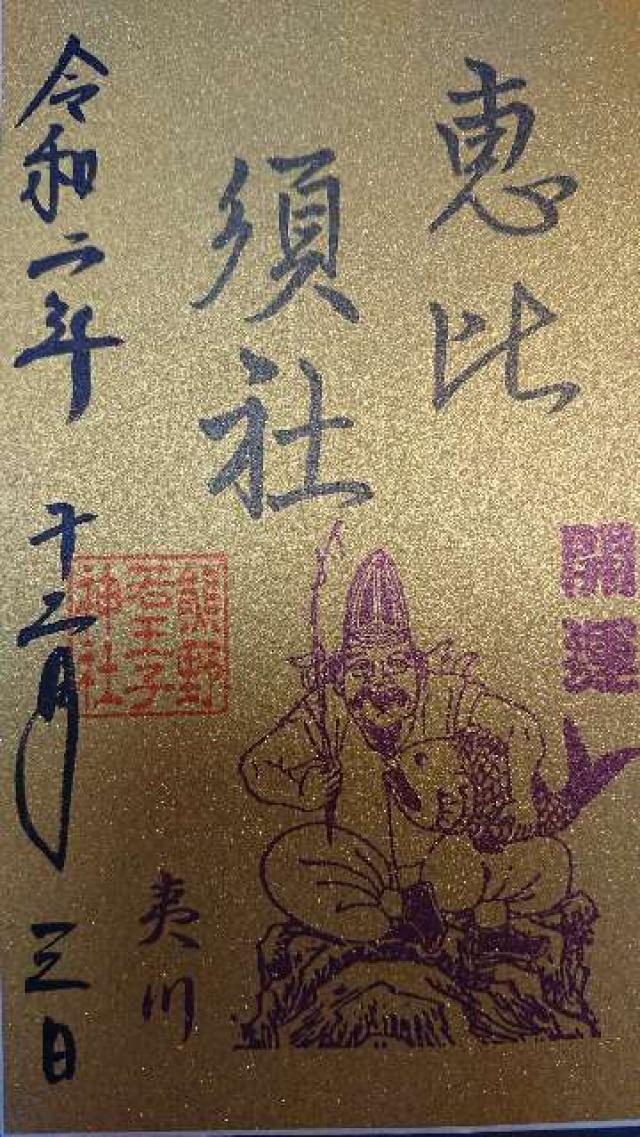 開運
恵比
須社
夷川
熊野
若王子
神社
令和二年 十二月 三日